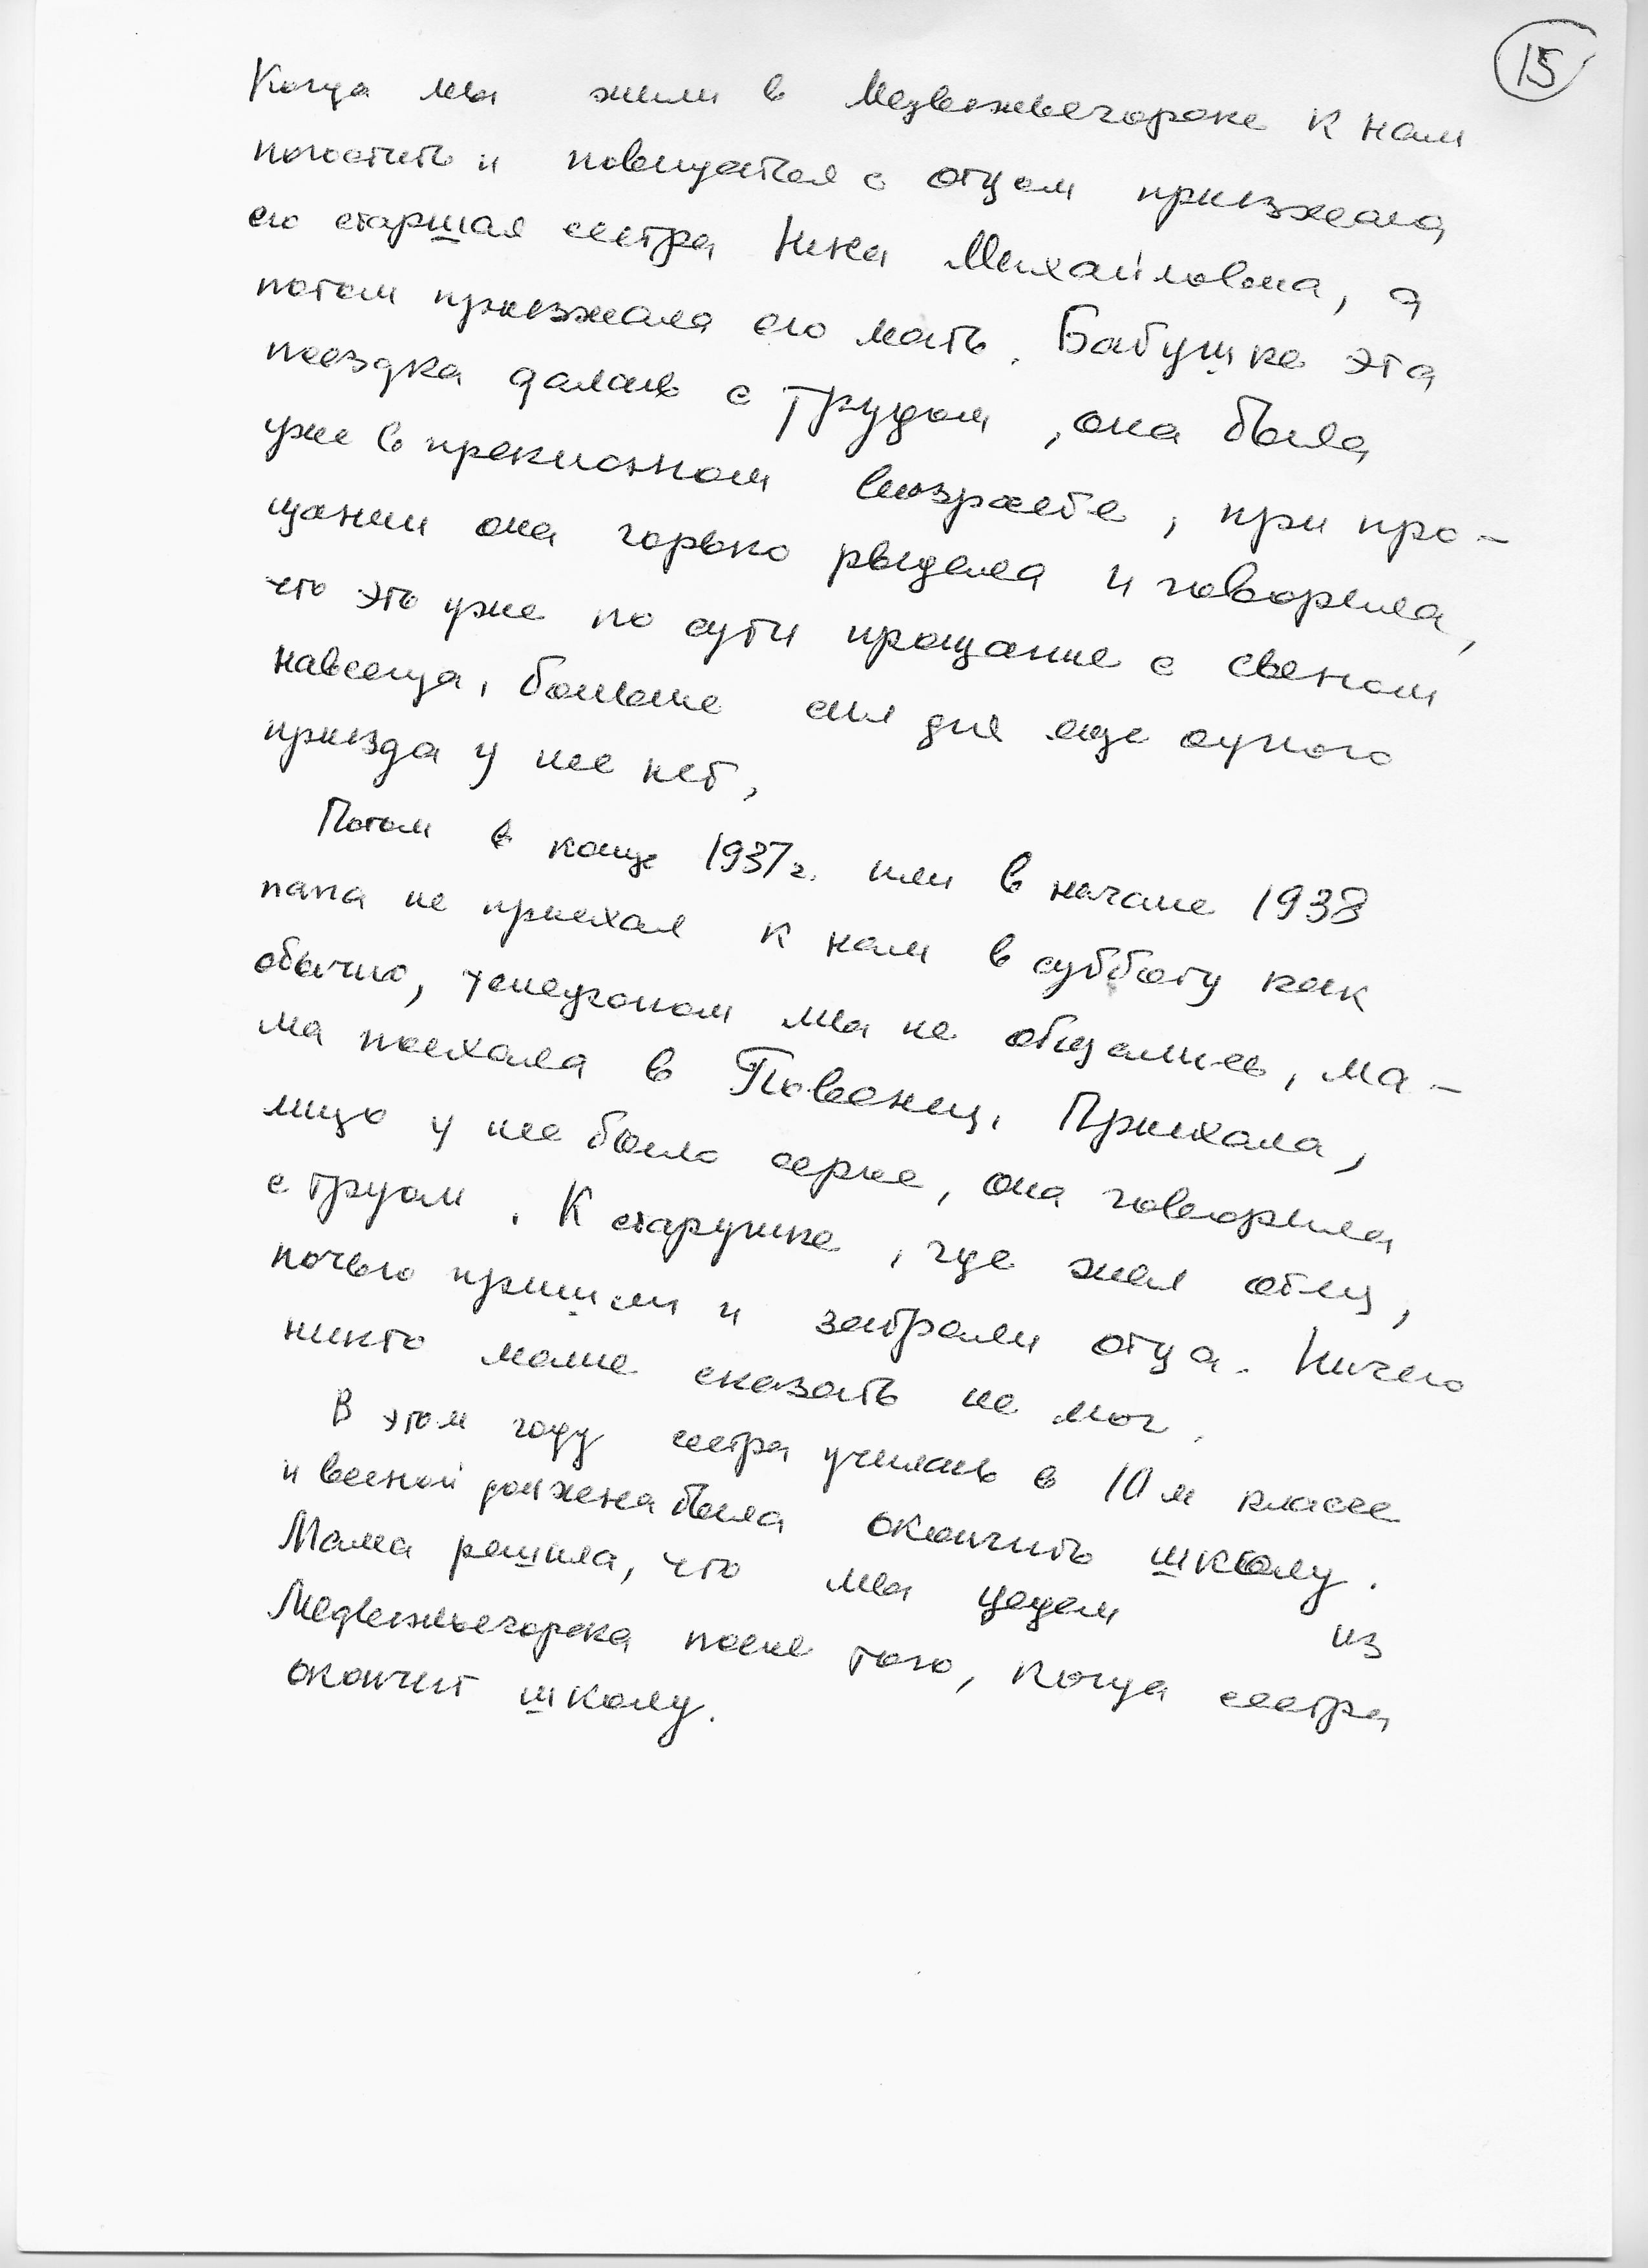 15
Когда мы жили в Медвежьегорске к нам
погостить и повидаться с отцом приезжала
его старшая сестра Нина Михайловна, а
потом приезжала его мать. Бабушке эта
поездка далась с трудом, она была
уже в преклонном возрасте, при про-
щании она горько рыдала и говорила,
что это уже по сути прощание с сыном
навсегда, больше сил для еще одного
приезда у нее нет.
Потом в конце 1937 г. или в начале 1938
папа не приехал к нам в субботу как
обычно, телефоном мы не общались, ма-
ма поехала в Повенец. Приехала,
лицо у нее было серое, она говорила
с трудом. К старушке, где жил отец,
ночью пришли и забрали отца. Ничего
никто маме сказать не мог.
В этом году сестра училась в 10м классе
и весной должна была окончить школу.
Мама решила, что мы уедем из
Медвежьегорска после того, когда сестра
окончит школу.